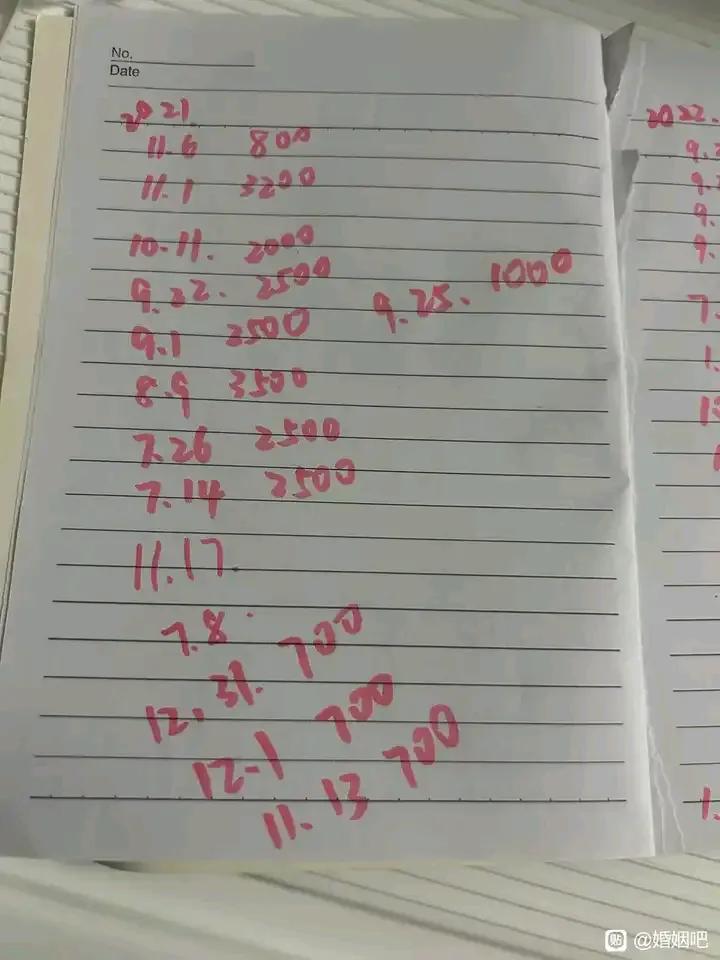 No.
Date
2021.
11.6 800
11.1 3200
10-11. 2000
9.22. 2500
9.25. 1000
9.1 2500
8.9 3500
7.26 2500
7.14 2500
11.17.
7.8.
12.31. 700
12-1 700
11.13 700
2022.
9.
9.
9.
7.
1.
1.
@婚姻吧